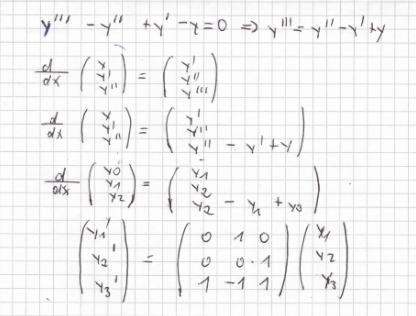 y''' - y'' + y' - y = 0 ⇒ y''' = y'' - y' + y
d/dx (y y' y'') = (y' y'' y''')
d/dx (y y' y'') = (y' y'' y'' - y' + y)
d/dx (y0 y1 y2) = (y1 y2 y2 - y1 + y0)
(y1' y2' y3') = (0 1 0 0 0 1 1 -1 1) (y1 y2 y3)